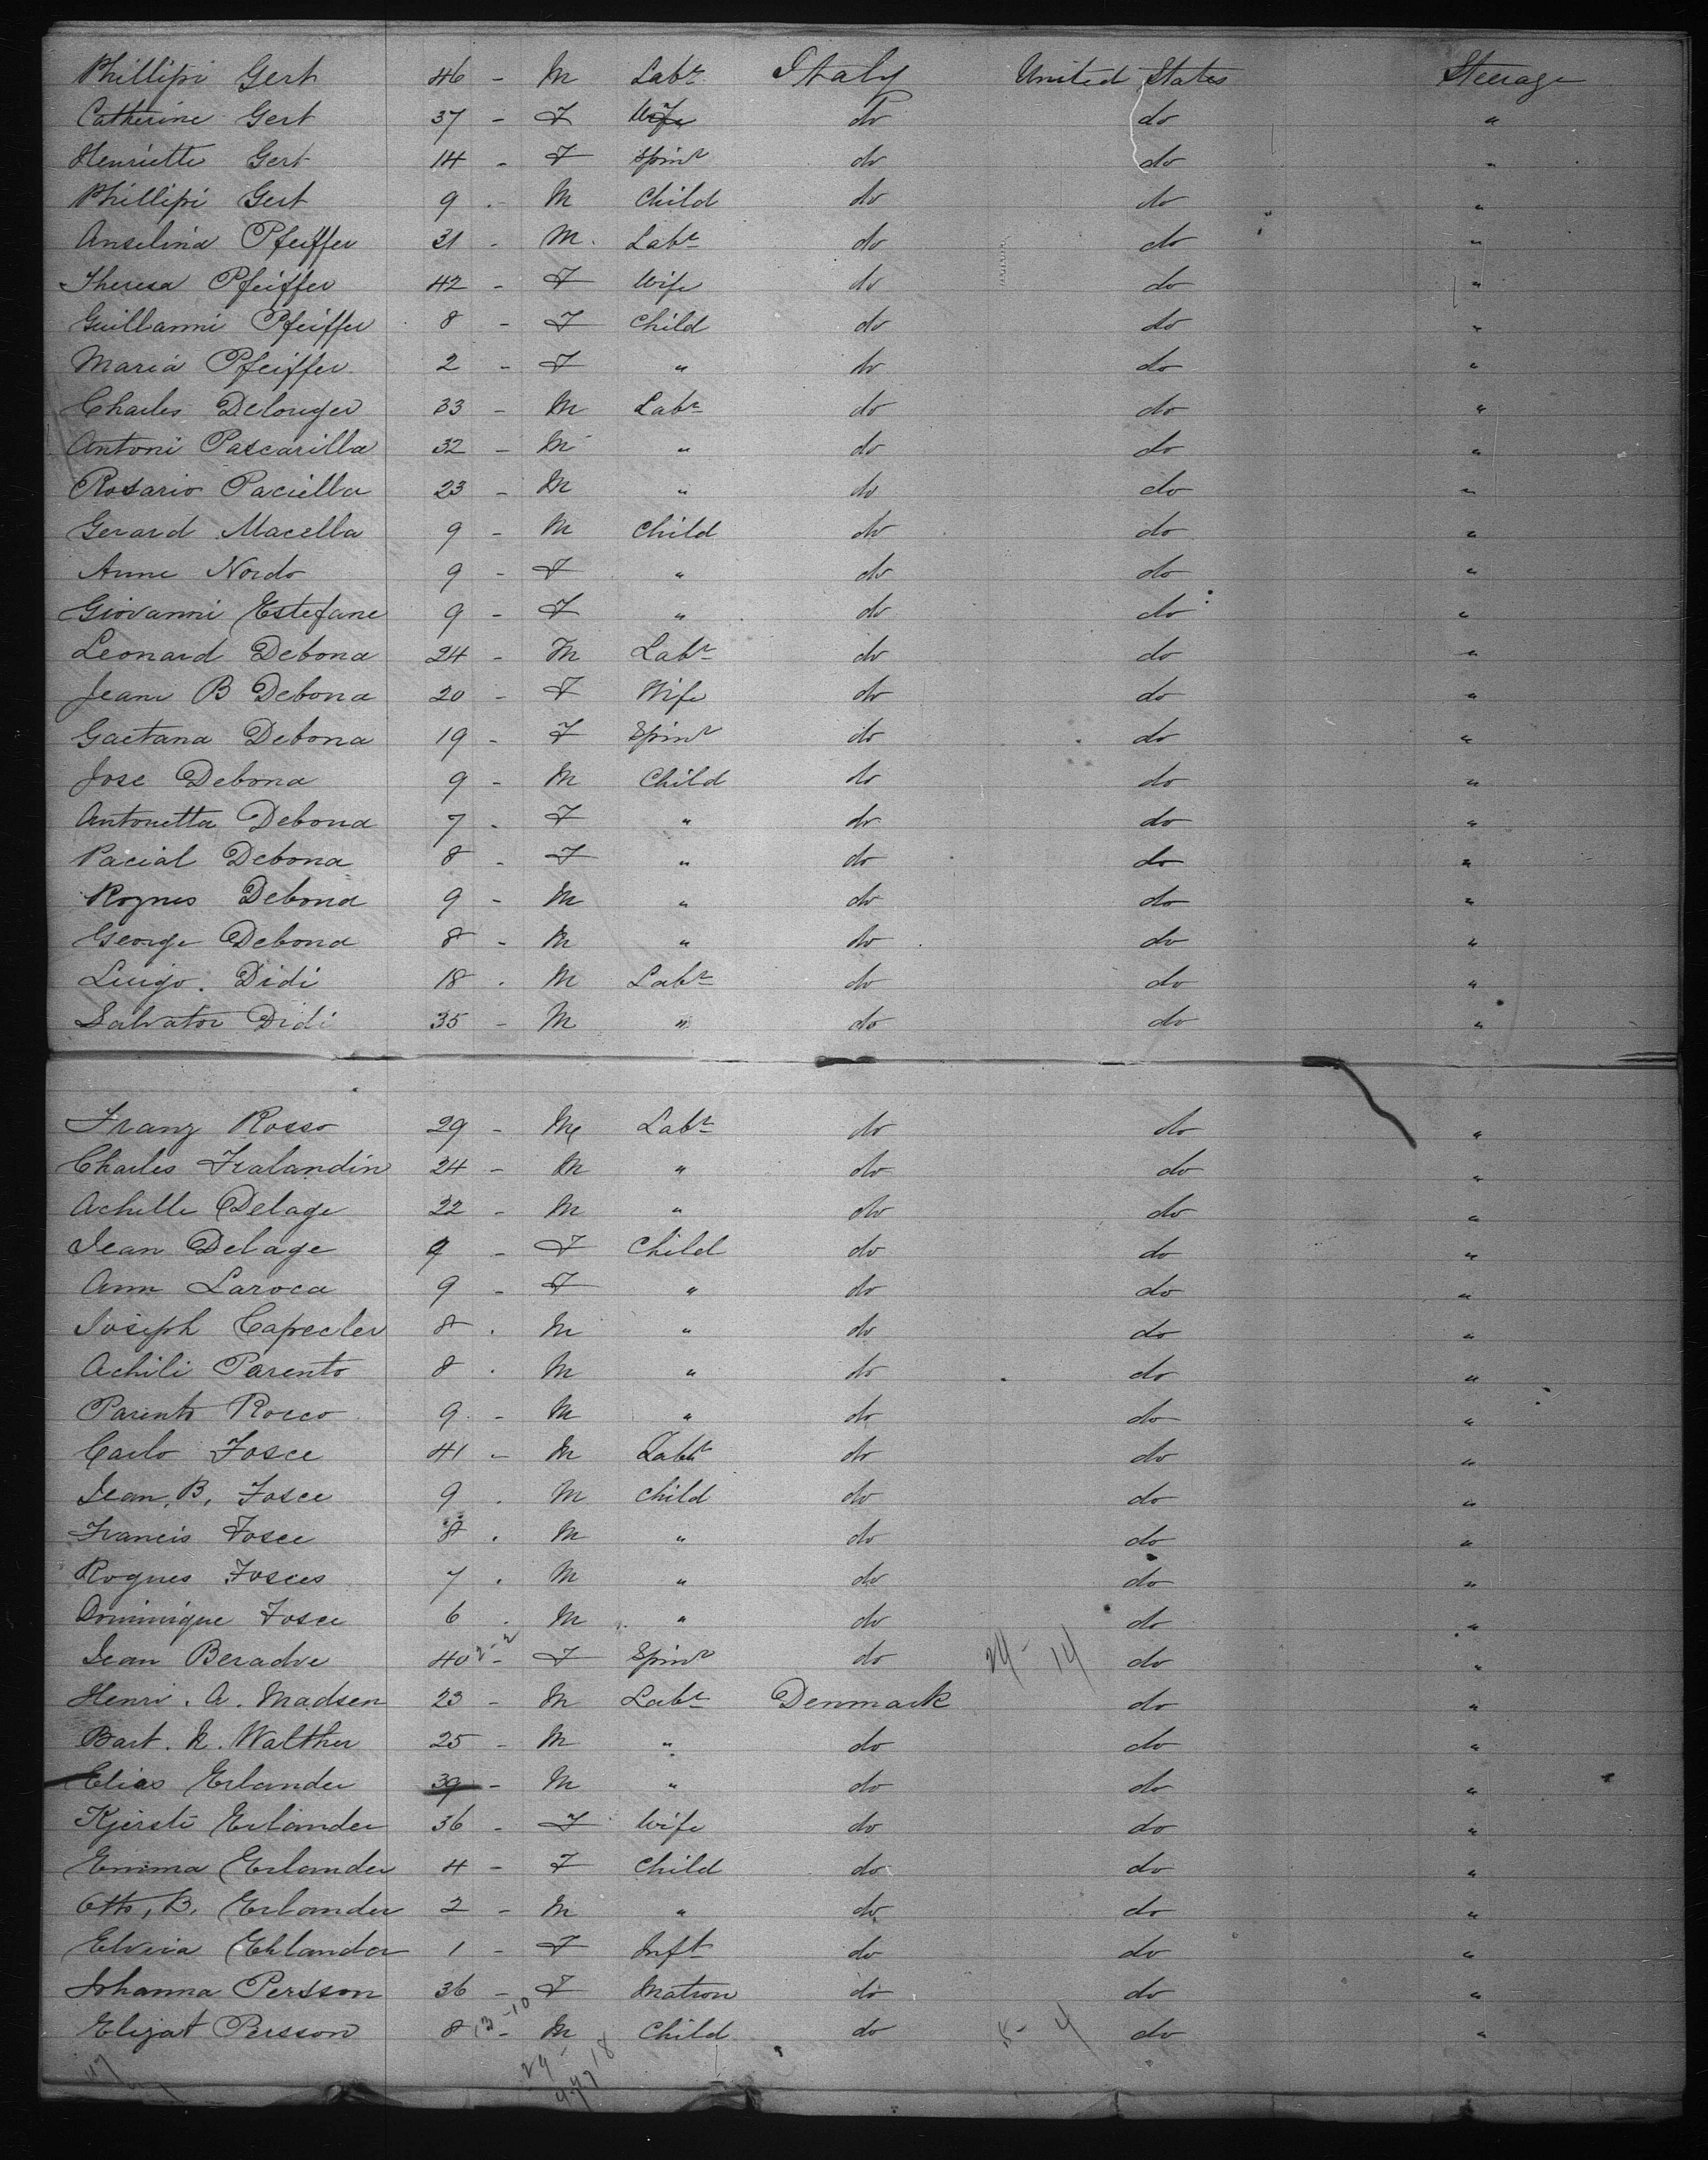 Phillipi Gert 46 - M Labr Italy United States Steerage
Catherine Gert 37 - F Wife do do "
Henriette Gert 14 - F Spinr do do "
Phillipi Gert 9 - M Child do do "
Anselina Pfeiffer 31 - M. Labr do do "
Theresa Pfeiffer 42 - F Wife do do "
Guillanmi Pfeiffer 8 - F Child do do "
Maria Pfeiffer 2 - F " do do "
Charles Delouger 33 - M Labr do do "
Antoni Pascarilla 32 - M " do do "
Rosario Paciella 23 - M " do do "
Gerard Macella 9 - M Child do do "
Anne Nordo 9 - F " do do "
Giovanni Estefane 9 - F " do do "
Leonard Debona 24 - M Labr do do "
Jeam B Debona 20 - F Wife do do "
Gaetana Debona 19 - F Spinr do do "
Jose Debona 9 - M Child do do "
Antonetta Debona 7 - F " do do "
Pacial Debona 8 - F " do do "
Rognes Debona 9 - M " do do "
George Debona 8 - M " do do "
Luigo. Didi 18 . M Labr do do "
Salvator Didi 35 - M " do do "
Franz Rosso 29 - M Labr do do "
Charles Fralandin 24 - M " do do "
Achille Delage 22 - M " do do "
Jean Delage 9 - F Child do do "
Ann Laroca 9 - F " do do "
Joseph Capecler 8 . M " do do "
Achili Parento 8 . M " do do "
Parento Rocco 9 - M " do do "
Carlo Fosce 41 - M Labr do do "
Jean, B, Fosce 9 . M Child do do "
Francis Fosce 8 . M " do do "
Rognes Fosces 7 . M " do do "
Dominique Fosce 6 . M " do do "
Jean Beradve 40 2-2 - F Spinr do 24 - 14 do "
Henri. A. Madsen 23 - M Labr Denmark do "
Bart. N. Walther 25 - M " do do "
Elias Erlander 39 - M " do do "
Kjersti Erlander 36 - F Wife do do "
Emma Erlander 4 - F Child do do "
Otto, B, Erlander 2 - M " do do "
Elvira Ehlander 1 - F Inft do do "
Johanna Persson 36 - F Matron do do "
Elizat Persson 8 13-10 - M Child do 5 - 4 do "